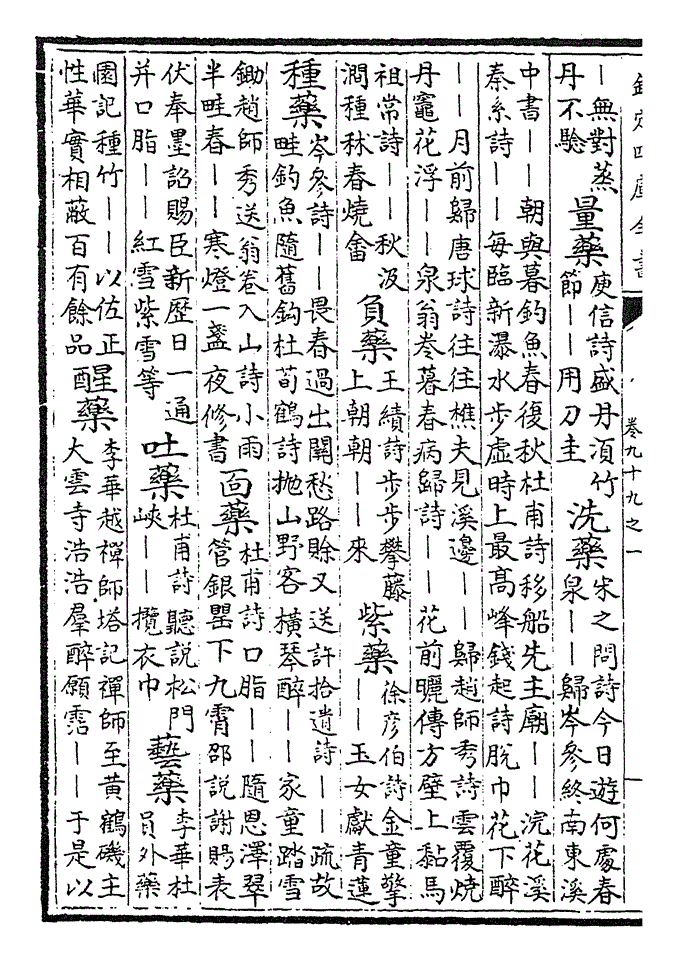 欽定四庫全書 卷九十九之一
|無對蒸丹不驗 量藥 庾信詩盛丹須竹節||用刀圭 洗藥 宋之問詩今日遊何處春泉||歸岑參終南東溪
中書||朝與暮釣魚春復秋杜甫詩移船先主廟||浣花溪
秦系詩||每臨新瀑水步虛時上最高峰錢起詩脫巾花下醉
||月前歸唐球詩往往樵夫見溪邊||歸趙師秀詩雲覆燒
丹竈花浮||泉翁卷暮春病歸詩||花前曬傳方壁上黏馬
祖常詩||秋汲澗種秫春燒畬 負藥 王績詩步步攀藤上朝朝||來 紫藥 徐彦伯詩金童擎||玉女獻青蓮
種藥 岑參詩||畏春過出關愁路賒又送許拾遺詩||疏故
畦釣魚隨舊鈎杜荀鶴詩抛山野客橫琴醉||家童踏雪
鋤趙師秀送翁卷入山詩小雨半畦春||寒燈一盞夜修書 面藥 杜甫詩口脂||隨恩澤翠管銀罌下九霄邵説謝賜表
伏奉墨詔賜臣新歷日一通并口脂||紅雪紫雪等 吐藥 杜甫詩聽説松門峽||攬衣巾 藝藥 李華杜員外藥
園記種竹||以佐正性華實相蔽百有餘品 醒藥 李華越禪師塔記禪師至黄鶴磯主大雲寺浩浩羣醉願霑||于是以